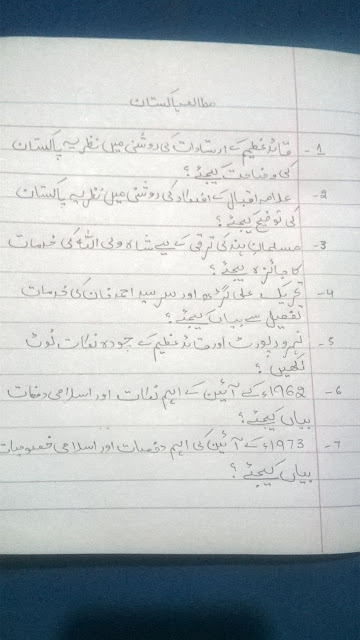 مطالعہ پاکستان
1- قائد اعظم کے ارشادات کی روشنی میں نظریہ پاکستان
کی وضاحت کیجئے؟
2- علامہ اقبال کے افکار کی روشنی میں نظریہ پاکستان
کی توضیح کیجئے؟
3- مسلمانِ ہند کی ترقی کے لیے شاہ ولی اللہ کی خدمات
کا جائزہ لیجئے؟
4- تحریک علی گڑھ اور سر سید احمد خان کی خدمات
تفصیل سے بیان کیجئے؟
5- نہرو رپورٹ اور قائد اعظم کے چودہ نکات نوٹ
لکھیں؟
6- 1962ء کے آئین کے اہم نکات اور اسلامی دفعات
بیان کیجئے؟
7- 1973ء کے آئین کی اہم دفعات اور اسلامی خصوصیات
بیان کیجئے؟